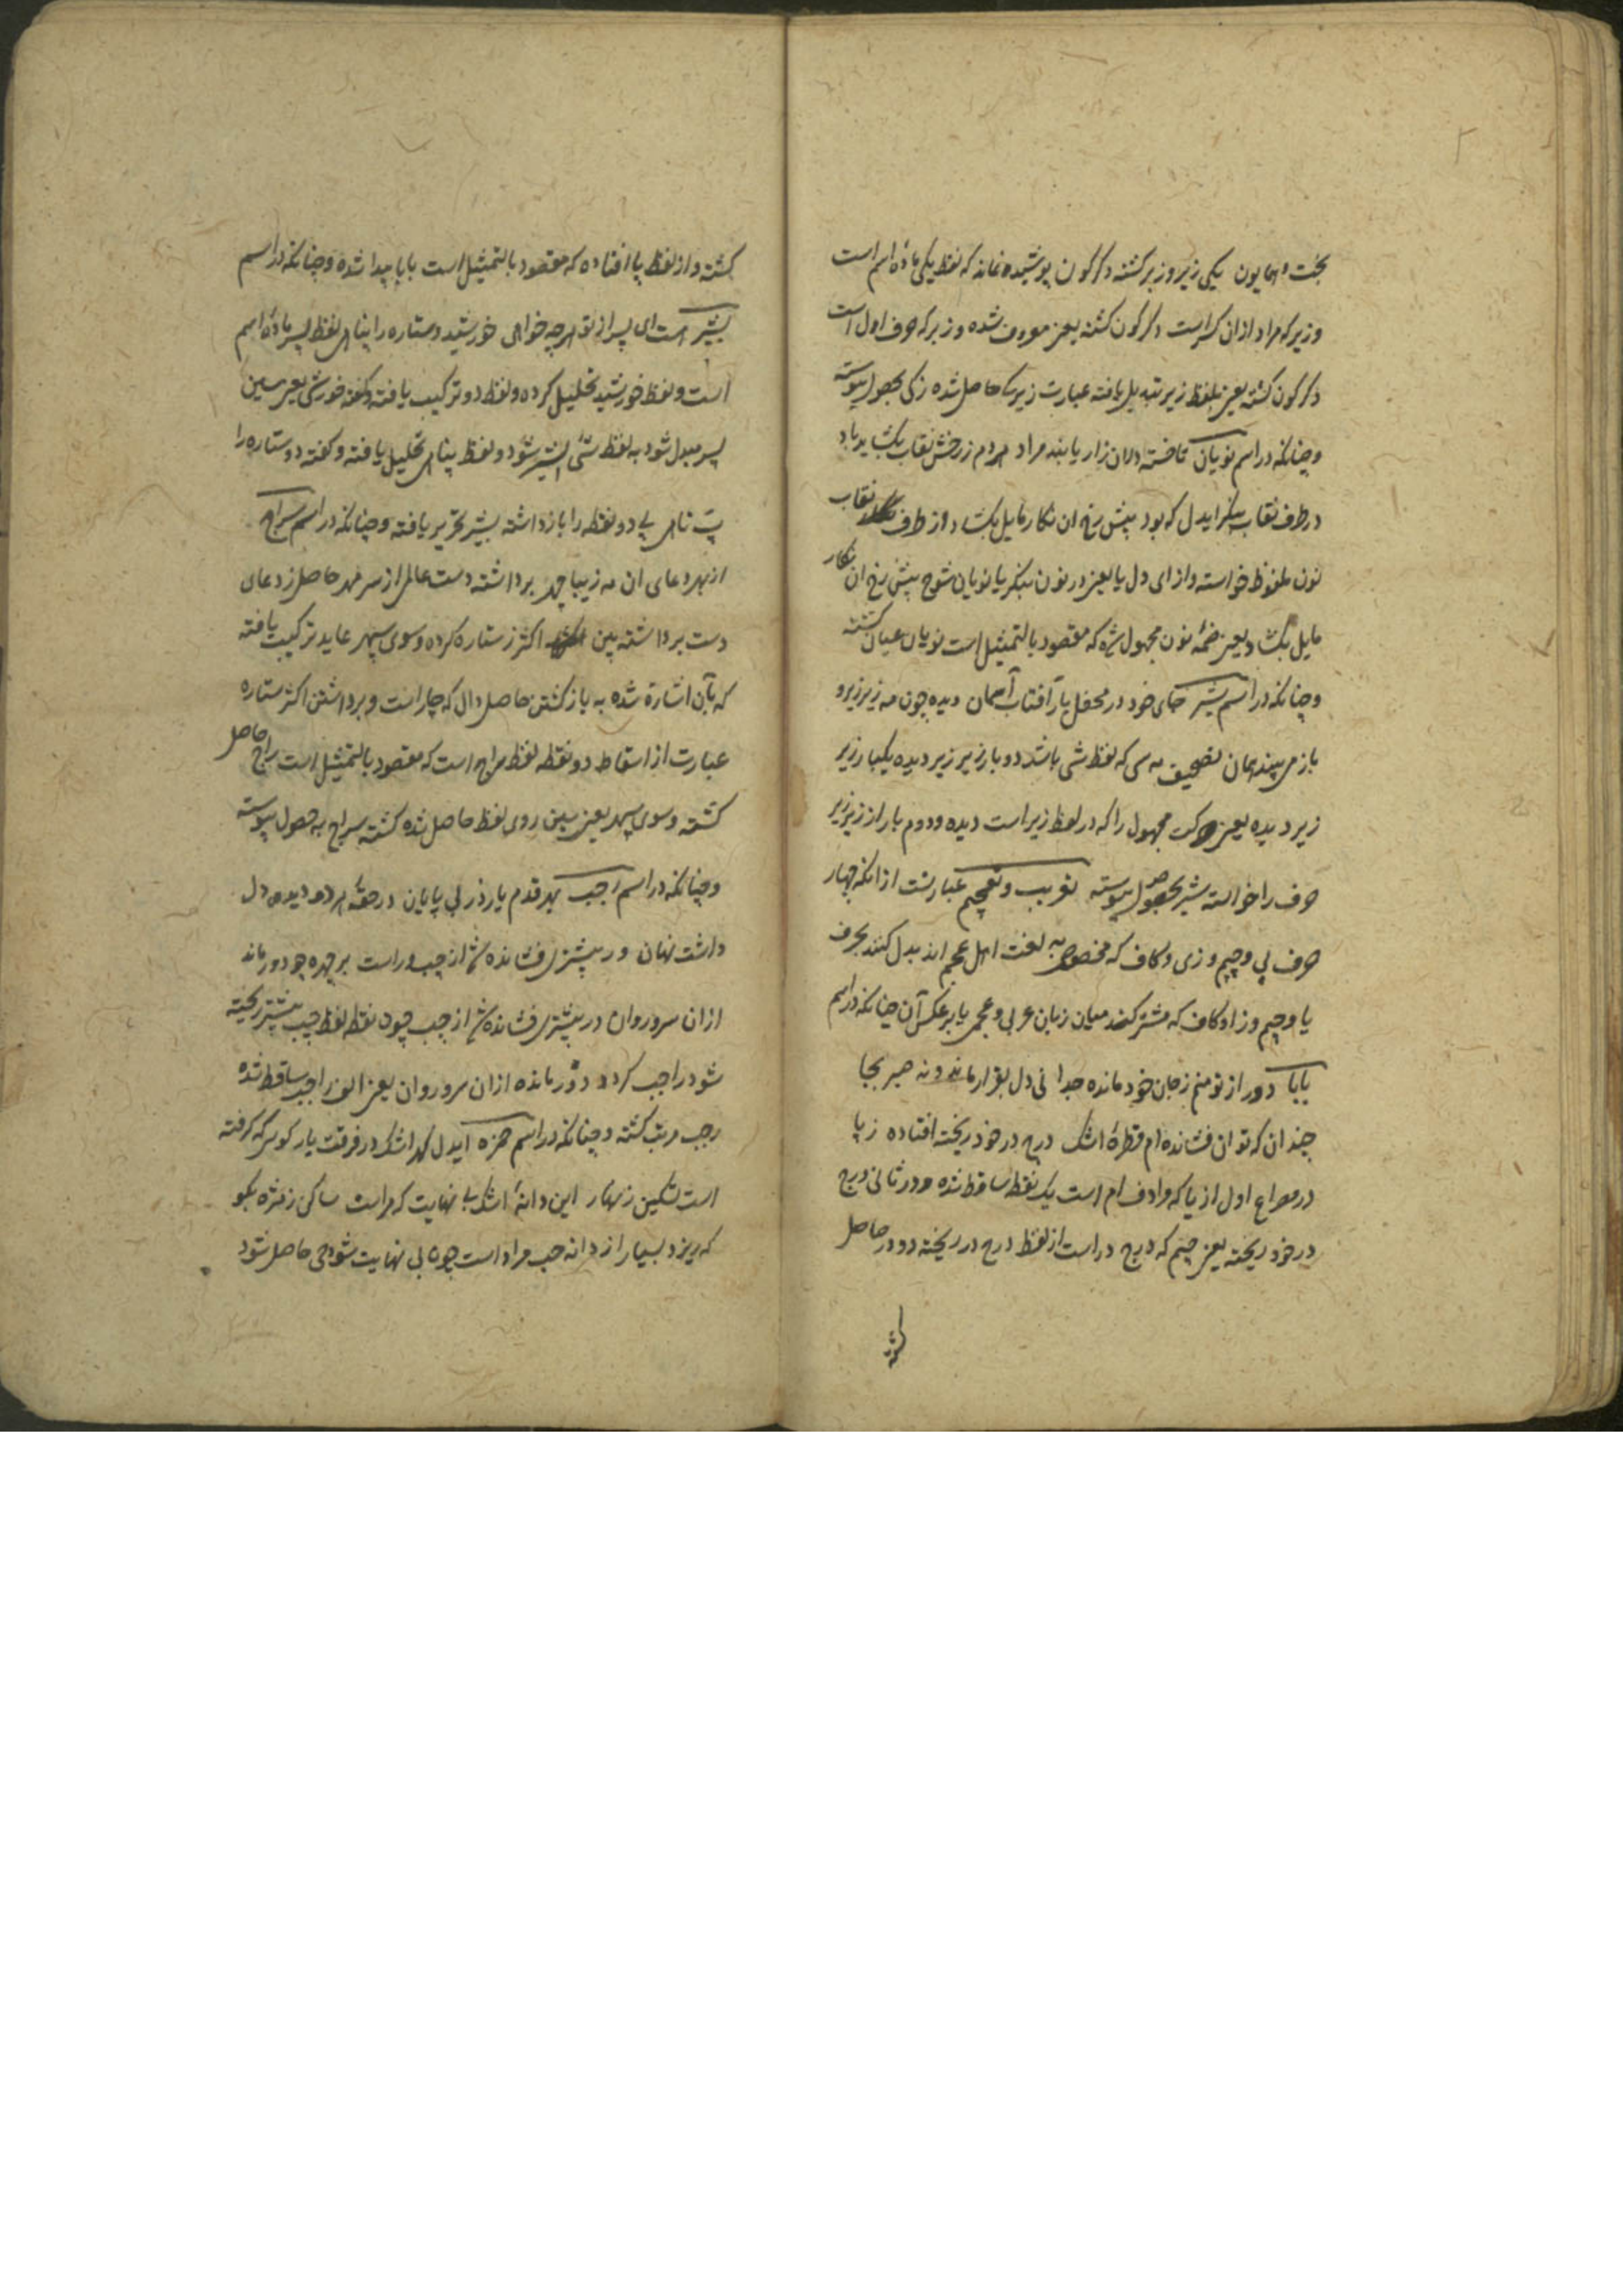 بخت همایون یکی زیر و زبر کشته دکرکون پوشیده نماند که لفظ یکی ماده اسم است
و زیر که مراد ازان کسر است دکرکون کشته یعنی معروف شده و زبر که حرف اول است
دکرکون کشته یعنی بلفظ زیر تبدیل یافته عبارت زیر حاصل شده زکی بحصول پیوسته
و چنانکه در اسم نویان تا خسته دلان زار یابند مراد مردم ز رخش نقاب بکشاید باد
در طرف نقاب بنکر ایدل که بود پیش رخ ان نکار مایل بکشاد از طرف نقاب
نون ملفوظ خواسته و از ای دل یا یعنی در نون بنکر یا نویان شوح پیش رخ ان نکار
مایل بکشاد یعنی ضمه نون مجهول شده که مقصود بالتمثیل است نویان عیان کشته
و چنانکه در اسم شیر جای خود در محفل یار آفتاب آسمان دیده چون مه زیر زیر و
باز می بیند همان تصحیف مه سی که لفظ شی باشد دو بار زیر زیر دیده یکبار زیر
زیر دیده یعنی حرکت مجهول را که در لفظ زیر است دیده و دوم بار از زیر زیر
حرف را خواسته شیر بحصول پیوسته تعریب و تعجیم عبارتست از انکه چهار
حرف پی و چیم و ژی و کاف که مخصوص به لغت اهل عجم اند بدل کنند بحرف
با و جیم و زا و کاف که مشترکند میان زبان عربی و عجمی یا برعکس آن چنانکه در اسم
بابا دور از تو منم ز جان خود مانده جدا نی دل بقرار مانده و نه صبر بجا
چندان که توان فشانده ام قطرهٔ اشک درج در خود ریخته افتاده ز پا
در مصراع اول از یا که مرادف ام است یک نقطه ساقط شده و در ثانی درج
در خود ریخته یعنی چیم که درج در است از لفظ درج در ریخته دو در حاصل
کشته
کشته و از لفظ پا افتاده که مقصود بالتمثیل است بابا پیدا شده و چنانکه در اسم
بشیر است ای پسر از تو هر چه خواهی خورشید و ستاره را پناهی لفظ پسر ماده اسم
است و لفظ خورشید تحلیل کرده و لفظ دو ترکیب یافته و کفته خورشی یعنی سین
پسر مبدل شود به لفظ شی بشیر شود و لفظ پناهی تحلیل یافته و کفته دو ستاره را
پ ناهی پی دو نقطه را باز داشته بشیر تحریر یافته و چنانکه در اسم سراج
از بهر دعای ان مه زیبا چهر برداشته دست عالمی از سر مهر حاصل ز دعای
دست برداشته بین اکثر ز ستاره کرده و سوی سپهر عاید ترکیب یافته
که بآن اشارة شده به بازکشتن حاصل دال که چار است و برداشتن اکثر ستاره
عبارت از اسقاط دو نقطه لفظ چراج است که مقصود بالتمثیل است راج حاصل
کشته و سوی سپهر یعنی سین روی لفظ حاصل شده کشته سراج به حصول پیوسته
و چنانکه در اسم رجب بهر قدم یار ذر بی پایان در حقهٔ هر دو دیده دل
داشت نهان و ر بیشتری فشانده شد از چپ و راست بر چهره چو دور ماند
ازان سرو روان و ر بیشتری فشانده شد از چپ چون نقطه لفظ چپ بیشتر ریخته
شود راجب کردد و دور مانده ازان سرو روان یعنی الف راجب ساقط شده
رجب مرتب کشته و چنانکه در اسم حمزه ایدل کهر اشک در فرقت یار کوس که کرفته
است تسکین زنهار این دانهٔ اشک با نهایت که مراست ساکن ز مژه بکو
که ریزد بسیار از دانه حب مراد است چون بی نهایت شود حی حاصل شود